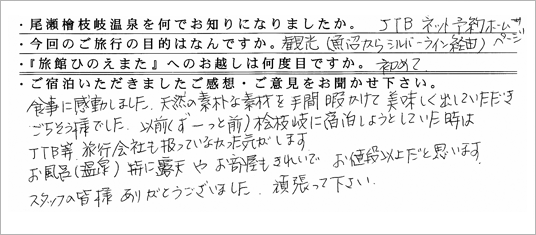 ・尾瀬檜枝岐温泉を何でお知りになりましたか。 JTB ネット予約ホームページ
・今回のご旅行の目的はなんですか。観光(魚沼からシルバーライン経由)
・『旅館ひのえまた』へのお越しは何度目ですか。 初めて
・ご宿泊いただきましたご感想・ご意見をお聞かせ下さい。
食事に感動しました。天然の素朴な素材を手間暇かけて美味しく出していただき
ごちそう様でした。以前(ずーっと前)桧枝岐に宿泊しようとしていた時は
JTB等、旅行会社も扱っていなかった気がします。
お風呂(温泉)特に露天やお部屋もきれいで お値段以上だと思います。
スタッフの皆様ありがとうございました。頑張って下さい。